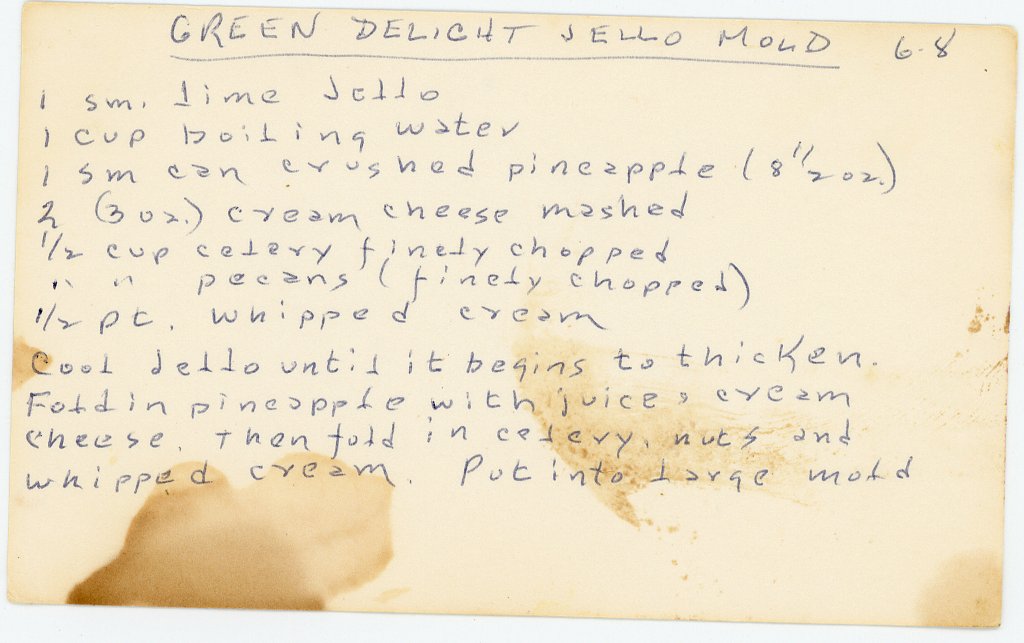 GREEN DELIGHT JELLO MOLD 6-8
1 sm. lime Jello
1 cup boiling water
1 sm can crushed pineapple (8 1/2 oz.)
2 (3 oz.) cream cheese mashed
1/2 cup celery finely chopped
" " pecans (finely chopped)
1/2 pt. whipped cream
Cool Jello until it begins to thicken.
Fold in pineapple with juice, cream
cheese. Then fold in celery, nuts and
whipped cream. Put into large mold